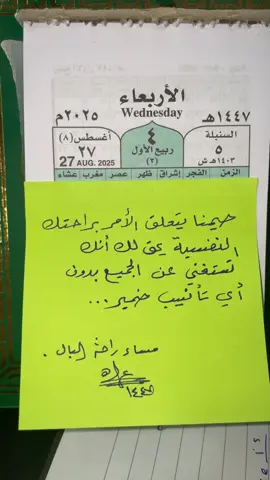 الأربعاء
Wednesday
١٤٤٧هـ
٢٠٢٥م
السنبلة
٥
١٤٠٣هـ ش
٤
ربيع الأول
(٣)
أغسطس (٨)
٢٧
27 AUG. 2025
الزمن الفجر إشراق ظهر عصر مغرب عشاء
حينما يتعلق الأمر براحتك
النفسية يحق لك أنك
تستغني عن الجميع بدون
أي تأنيب ضمير...
مساء راحة البال .